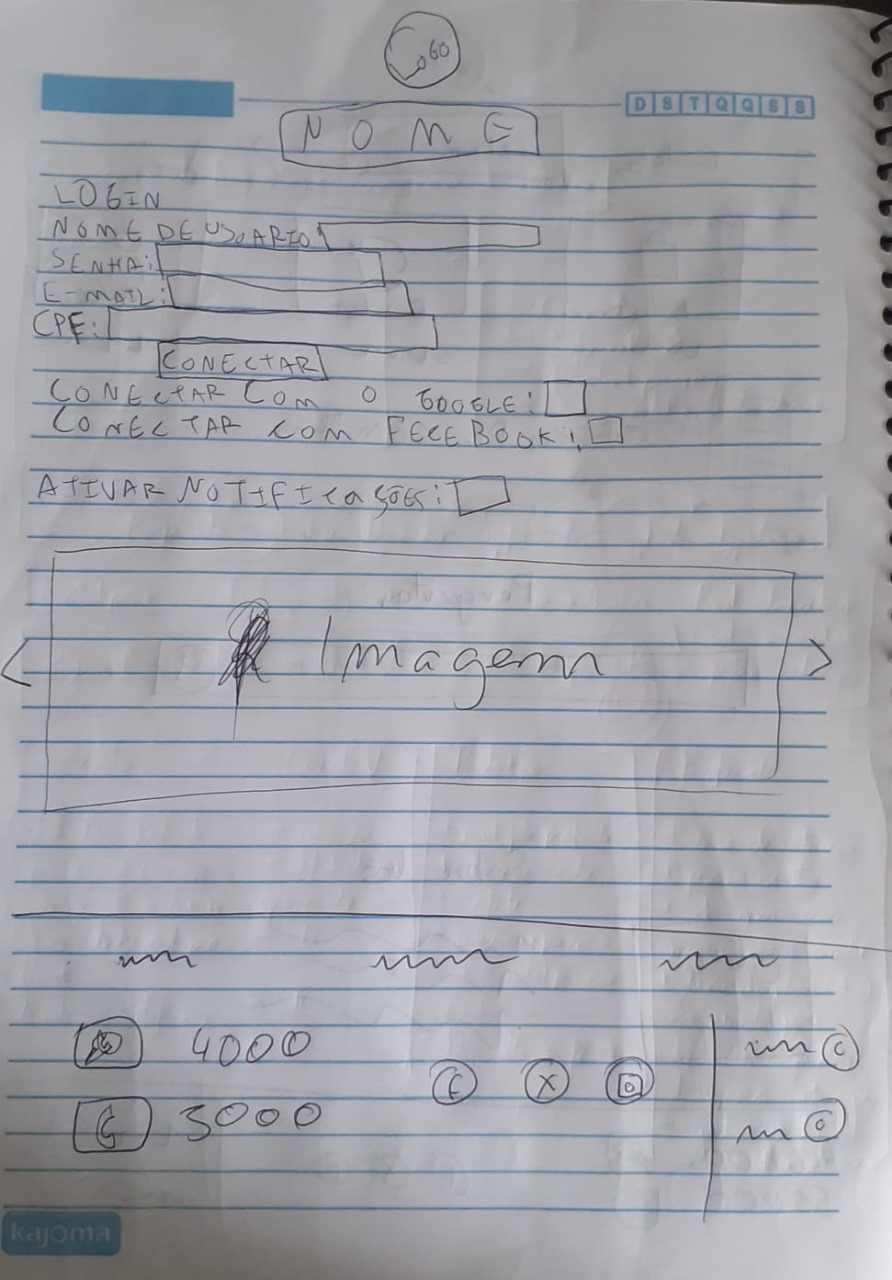 Logo
D S T Q Q S S
NOME
LOGIN
NOME DE USUARIO
SENHA:
E-MAIL:
CPF:
CONECTAR
CONECTAR COM O GOOGLE:
CONECTAR COM FECEBOOK:
ATIVAR NOTIFICAÇÕES:
< Imagem >
4000
f X
G 5000
C
C
kajoma